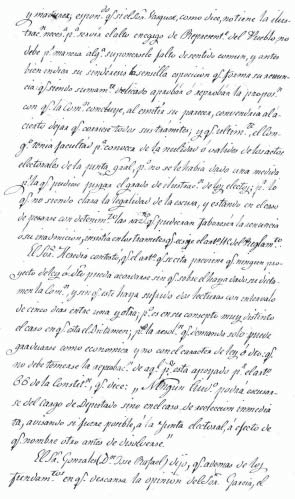 y madurez, expon.e q.e si el Sor. Vargas, como dice, no tiene la ilus-
trac.n neces.a p.a servir el alto encargo de Represent.e del Pueblo, no
debe p.r manera alg.a suponersele falto de sentido comun, y antes
bien indica su senda la sencilla exposicion q.e forma su renun-
cia q.e siendo sumam.te delicado aprobar ó reprobar la propos.n
con q.e la Com.n concluye, al emitir su parecer, convendria al a-
cierto dejar q.e corriese todos sus tramites; y q.e ultim.te el Con-
g.o tenia facultad p.a conocer de la nulidad ó validez de los actos
electorales de la junta gral, p.o no se le habia dado una medida
p.a la q.e pudiera juzgar el grado de ilustrac.n de los electos; p.r lo
q.e no siendo clara la legalidad de la escusa, y estando en el caso
de pesarse con detenim.to las raz.s q.e pudieran favorecer la renuncia
ó su inadmicion, insistia en los tramites q.e exige el art.o 111 del Reglam.to
El Sor. Hendia contestó, q.e el art.o q.e se cita previene q.e ningun pro-
yecto de ley ó dto. pueda acordarse sin q.e sobre él haya dado su dicta-
men la Com.n, y sin q.e este haya sufrido dos lecturas con intervalo
de cinco dias entre una y otra; p.o es en su concepto muy distinto
el caso en q.e está el Dictamen; p.s la resol.n q.e demanda solo puede
graduarse como economica y no con el caracter de ley ó dto. q.e
no debe temerse la aprobac.n de aq.l p.s está apoyado p.r el art.o
66 de la Constit.n, q.e dice; "Ningun Ciud.o podrá escusar-
se del cargo de Diputado sino en el caso de reeleccion inmedia-
ta, avisando si fuere posible, á la junta electoral, á efecto de
q.e nombre otro antes de disolverse."
El Sr. Gonzalez (Dn. Jose Rafael) dijo, q.e ademas de los
fundam.tos en q.e descansa la opinion del Sor. Garcia, el